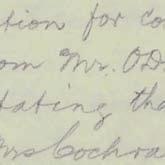 tion for co
om Mr. OD
tating tha
Mrs Cochra